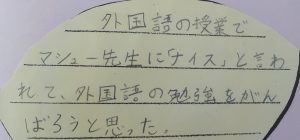 外国語の授業で
マシュー先生に「ナイス」と言わ
れて、外国語の勉強をがん
ばろうと思った。